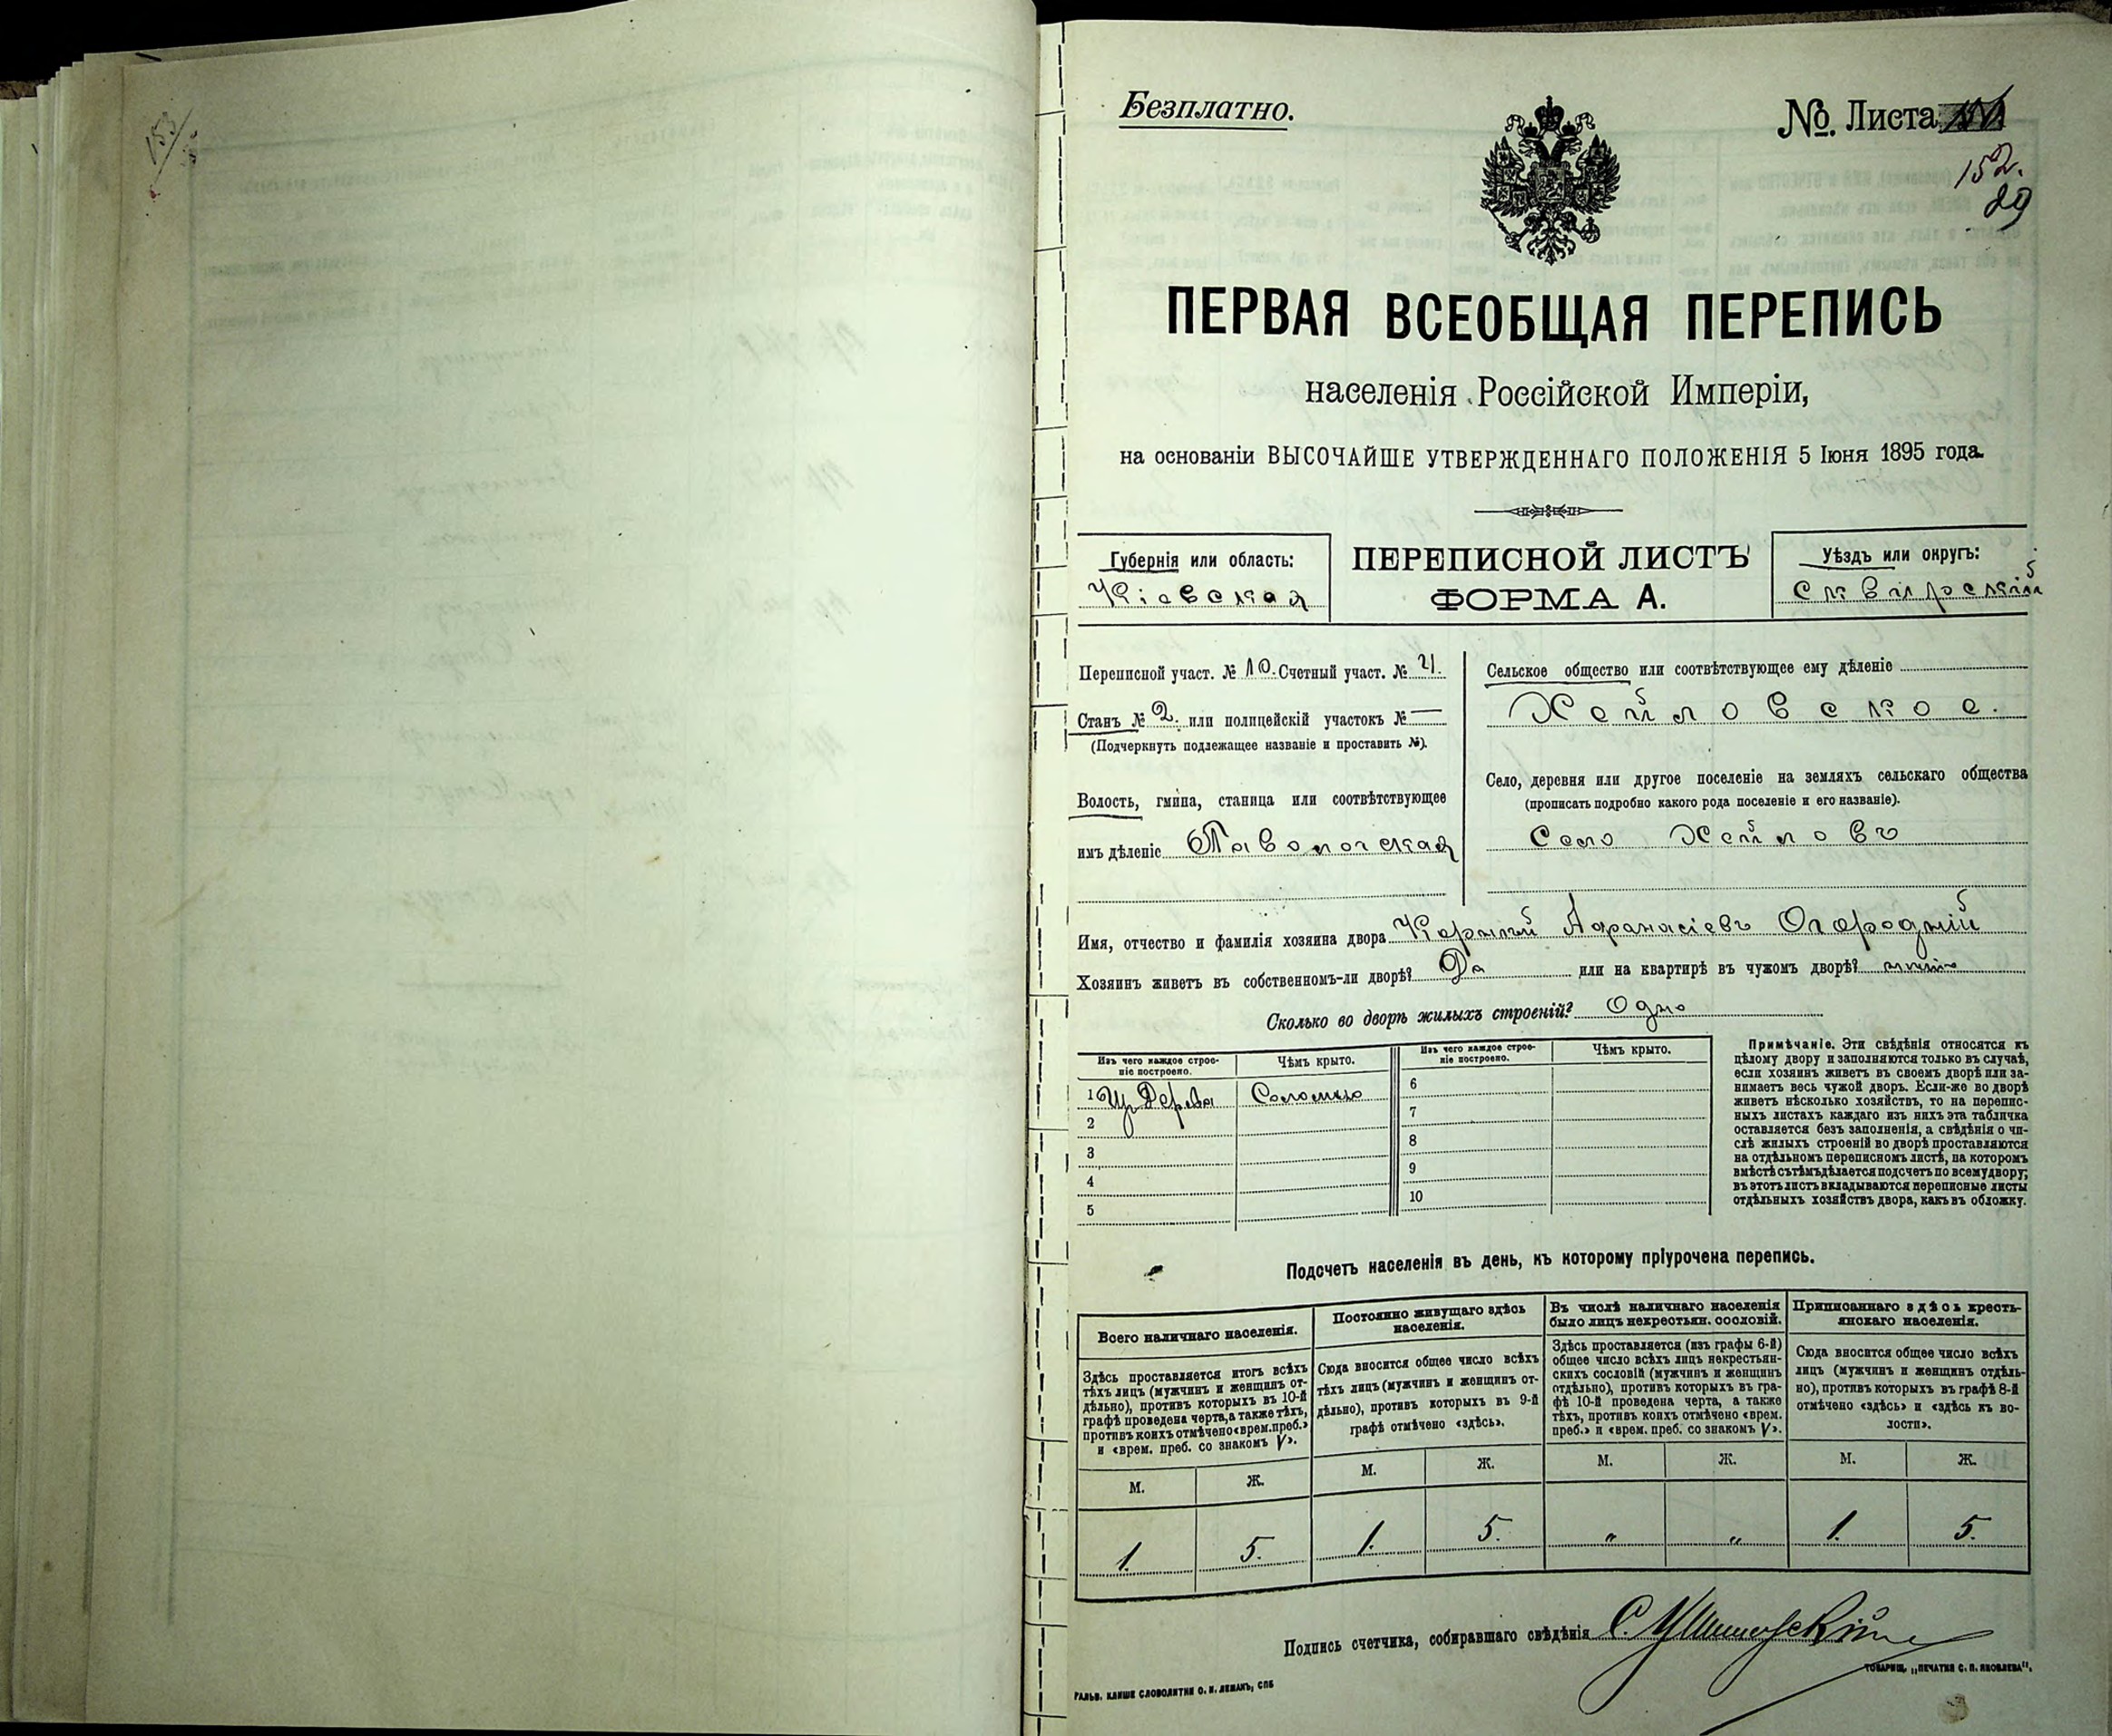 Безплатно.
№. Листа
152.
29
ПЕРВАЯ ВСЕОБЩАЯ ПЕРЕПИСЬ
населенія Россійской Имперіи,
на основаніи ВЫСОЧАЙШЕ УТВЕРЖДЕННАГО ПОЛОЖЕНІЯ 5 Іюня 1895 года.
Губернія или область:
Кіевская
ПЕРЕПИСНОЙ ЛИСТЪ
ФОРМА А.
Уѣздъ или округъ:
Сквирскій
Переписной участ. № 10. Счетный участ. № 21.
Станъ № 2. или полицейскій участокъ № —
(Подчеркнуть подлежащее названіе и проставить №).
Волость, гмина, станица или соотвѣтствующее
имъ дѣленіе Паволочская
Сельское общество или соотвѣтствующее ему дѣленіе
Хейловское.
Село, деревня или другое поселеніе на земляхъ сельскаго общества
(прописать подробно какого рода поселеніе и его названіе).
Село Хейловъ
Имя, отчество и фамилія хозяина двора Корнилій Афанасіевъ Огородній
Хозяинъ живетъ въ собственномъ-ли дворѣ? Да или на квартирѣ въ чужомъ дворѣ?
Сколько во дворѣ жилыхъ строеній? Одно
Изъ чего каждое строе-
ніе построено.
Чѣмъ крыто.
Изъ чего каждое строе-
ніе построено.
Чѣмъ крыто.
1 Изъ Дерева Соломою
2
3
4
5
6
7
8
9
10
Примѣчаніе. Эти свѣдѣнія относятся къ
цѣлому двору и заполняются только въ случаѣ,
если хозяинъ живетъ въ своемъ дворѣ или за-
нимаетъ весь чужой дворъ. Если-же во дворѣ
живетъ нѣсколько хозяйствъ, то на перепис-
ныхъ листахъ каждаго изъ нихъ эта табличка
оставляется безъ заполненія, а свѣдѣнія о чи-
слѣ жилыхъ строеній во дворѣ проставляются
на отдѣльномъ переписномъ листѣ, на которомъ
вмѣстѣ съ тѣмъ дѣлается подсчетъ по всему двору;
въ этотъ листъ вкладываются переписные листы
отдѣльныхъ хозяйствъ двора, какъ въ обложку.
Подсчетъ населенія въ день, къ которому пріурочена перепись.
Всего наличнаго населенія.
Здѣсь проставляется итогъ всѣхъ
тѣхъ лицъ (мужчинъ и женщинъ от-
дѣльно), противъ которыхъ въ 10-й
графѣ проведена черта, а также тѣхъ,
противъ коихъ отмѣчено «врем. преб.»
и «врем. преб. со знакомъ V».
М. Ж.
1. 5.
Постоянно живущаго здѣсь
населенія.
Сюда вносится общее число всѣхъ
тѣхъ лицъ (мужчинъ и женщинъ от-
дѣльно), противъ которыхъ въ 9-й
графѣ отмѣчено «здѣсь».
М. Ж.
1. 5.
Въ числѣ наличнаго населенія
было лицъ некрестьян. сословій.
Здѣсь проставляется (изъ графы 6-й)
общее число всѣхъ лицъ некрестьян-
скихъ сословій (мужчинъ и женщинъ
отдѣльно), противъ которыхъ въ гра-
фѣ 10-й проведена черта, а также
тѣхъ, противъ коихъ отмѣчено «врем.
преб.» и «врем. преб. со знакомъ V».
М. Ж.
" "
Приписаннаго здѣсь кресть-
янскаго населенія.
Сюда вносится общее число всѣхъ
лицъ (мужчинъ и женщинъ отдѣль-
но), противъ которыхъ въ графѣ 8-й
отмѣчено «здѣсь» и «здѣсь къ во-
лости».
М. Ж.
1. 5.
Подпись счетчика, собиравшаго свѣдѣнія
ГАЛЬВ. КЛИШЕ СЛОВОЛИТНИ О. И. ЛЕМАНЪ, СПБ
ТОВАРИЩ. „ПЕЧАТНЯ С. П. ЯКОВЛЕВА".